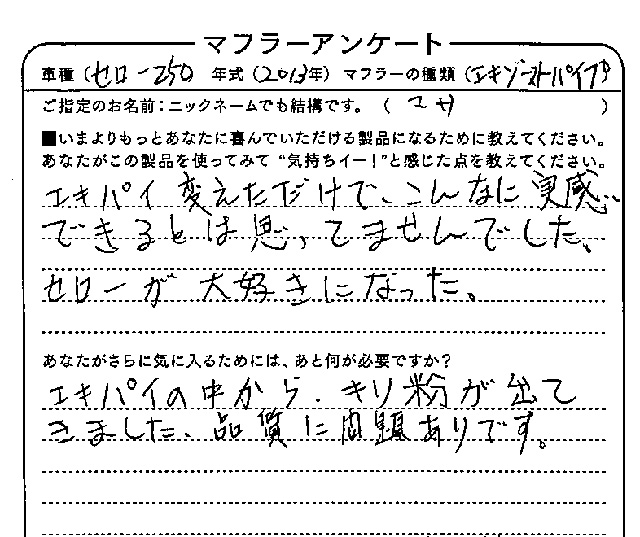 マフラーアンケート
車種（セロー250 年式（2013年）マフラーの種類（エキゾーストパイプ）
ご指定のお名前：ニックネームでも結構です。（ コサ ）
■いまよりもっとあなたに喜んでいただける製品になるために教えてください。
あなたがこの製品を使ってみて“気持ちイー！”と感じた点を教えてください。
エキパイ変えただけで、こんなに実感
できるとは思ってませんでした、
セローが大好きになった。
あなたがさらに気に入るためには、あと何が必要ですか？
エキパイの中から、キリ粉が出て
きました、品質に問題ありです。